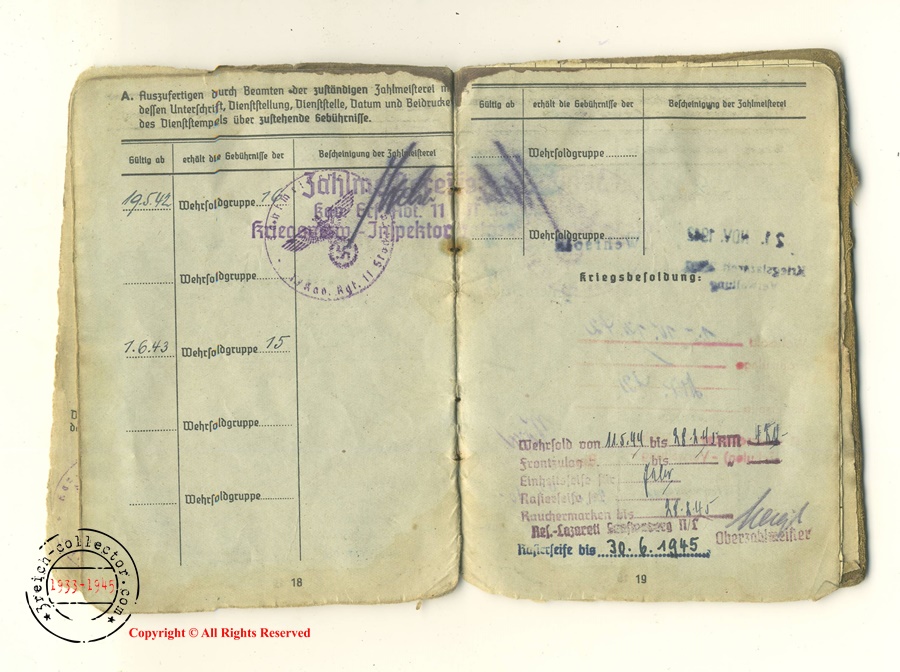 A. Auszufertigen durch Beamten der zuständigen Zahlmeisterei m
dessen Unterschrift, Dienststellung, Dienststelle, Datum und Beidrucke
des Dienststempels über zustehende Gebührnisse.
Gültig ab erhält die Gebührnisse der Bescheinigung der Zahlmeisterei
19.5.42 Wehrsoldgruppe 16
Kriegsverw.-Inspektor
Wehrsoldgruppe
1.6.43 Wehrsoldgruppe 15
Wehrsoldgruppe
Wehrsoldgruppe
18
Gültig ab erhält die Gebührnisse der Bescheinigung der Zahlmeisterei
Wehrsoldgruppe
Wehrsoldgruppe
21. NOV. 1942
Kriegsbesoldung:
Wehrsold von 11.5.44 bis 28.2.45 RM
Frontzulage bis
Einheitsseife für
Rasierseife für
Rauchermarken bis 28.2.45
Res.-Lazarett II/L
Oberzahlmeister
Rasierseife bis 30.6.1945
19
3reich-collector.com
1933-1945
Copyright © All Rights Reserved